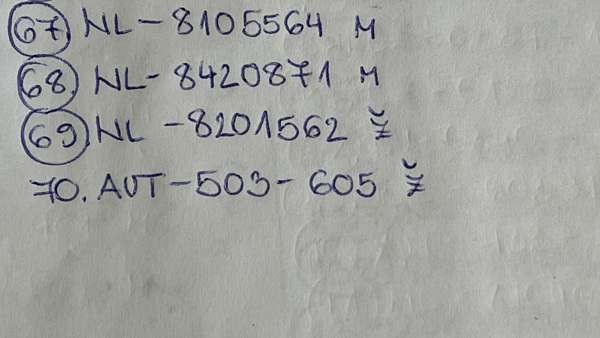 67. NL-8105564 M
68. NL-8420871 M
69. NL-8201562 Ž
70. AUT-503-605 Ž